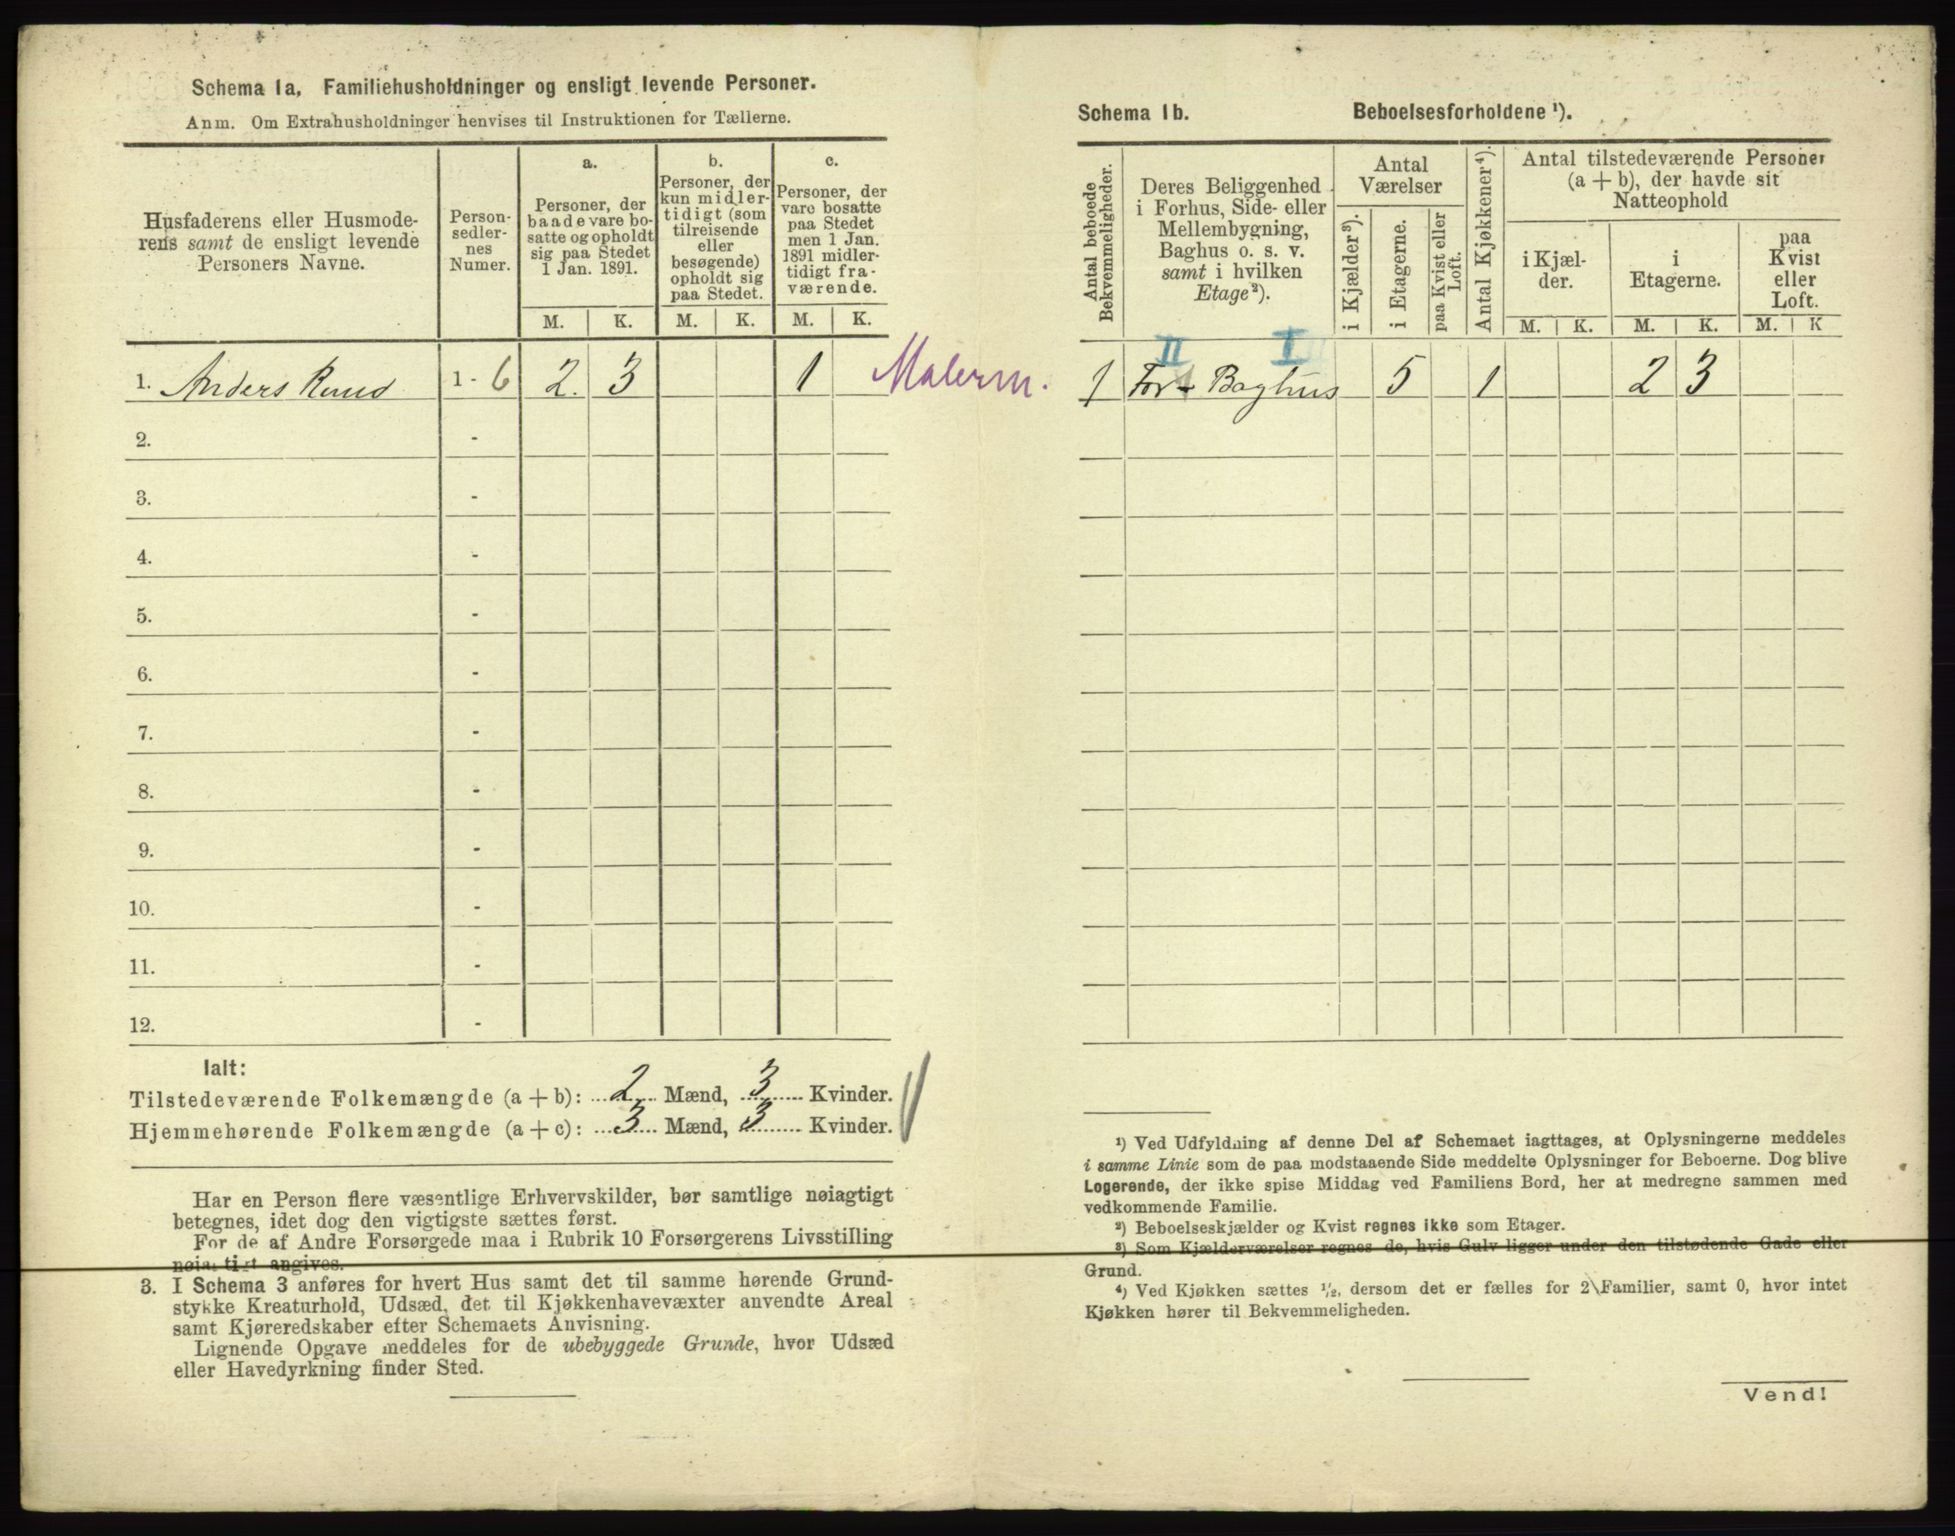 Schema 1a, Familiehusholdninger og ensligt levende Personer.
Anm. Om Extrahusholdninger henvises til Instruktionen for Tællerne.
Husfaderens eller Husmode-
rens samt de ensligt levende
Personers Navne.
Person-
sedler-
nes
Numer.
a.
Personer, der
baade vare bo-
satte og opholdt
sig paa Stedet
1 Jan. 1891.
b.
Personer, der
kun midler-
tidigt (som
tilreisende
eller
besøgende)
opholdt sig
paa Stedet.
c.
Personer, der
vare bosatte
paa Stedet
men 1 Jan.
1891 midler-
tidigt fra-
værende.
M. K. M. K. M. K.
1. Anders Ruud 1 - 6 2. 3 1 Malerm.
2. -
3. -
4. -
5. -
6. -
7. -
8. -
9. -
10. -
11. -
12. -
Ialt:
Tilstedeværende Folkemængde (a + b): 2 Mænd, 3 Kvinder.
Hjemmehørende Folkemængde (a + c): 3 Mænd, 3 Kvinder.
Har en Person flere væsentlige Erhvervskilder, bør samtlige nøiagtigt
betegnes, idet dog den vigtigste sættes først.
For de af Andre Forsørgede maa i Rubrik 10 Forsørgerens Livsstilling
nøiagtigt angives.
3. I Schema 3 anføres for hvert Hus samt det til samme hørende Grund-
stykke Kreaturhold, Udsæd, det til Kjøkkenhavevæxter anvendte Areal
samt Kjøreredskaber efter Schemaets Anvisning.
Lignende Opgave meddeles for de ubebyggede Grunde, hvor Udsæd
eller Havedyrkning finder Sted.
Schema 1b. Beboelsesforholdene ¹).
Antal beboede
Bekvemmeligheder.
Deres Beliggenhed
i Forhus, Side- eller
Mellembygning,
Baghus o. s. v.
samt i hvilken
Etage²).
Antal
Værelser
i Kjælder³).
i Etagerne.
paa Kvist eller
Loft.
Antal Kjøkkener⁴).
Antal tilstedeværende Personer
(a + b), der havde sit
Natteophold
i Kjæl-
der.
i
Etagerne.
paa
Kvist
eller
Loft.
M. K. M. K. M. K
II I
1 For - Baghus 5 1 2 3
¹) Ved Udfyldning af denne Del af Schemaet iagttages, at Oplysningerne meddeles
i samme Linie som de paa modstaaende Side meddelte Oplysninger for Beboerne. Dog blive
Logerende, der ikke spise Middag ved Familiens Bord, her at medregne sammen med
vedkommende Familie.
²) Beboelseskjælder og Kvist regnes ikke som Etager.
³) Som Kjælderværelser regnes de, hvis Gulv ligger under den tilstødende Gade eller
Grund.
⁴) Ved Kjøkken sættes ½, dersom det er fælles for 2 Familier, samt 0, hvor intet
Kjøkken hører til Bekvemmeligheden.
Vend!